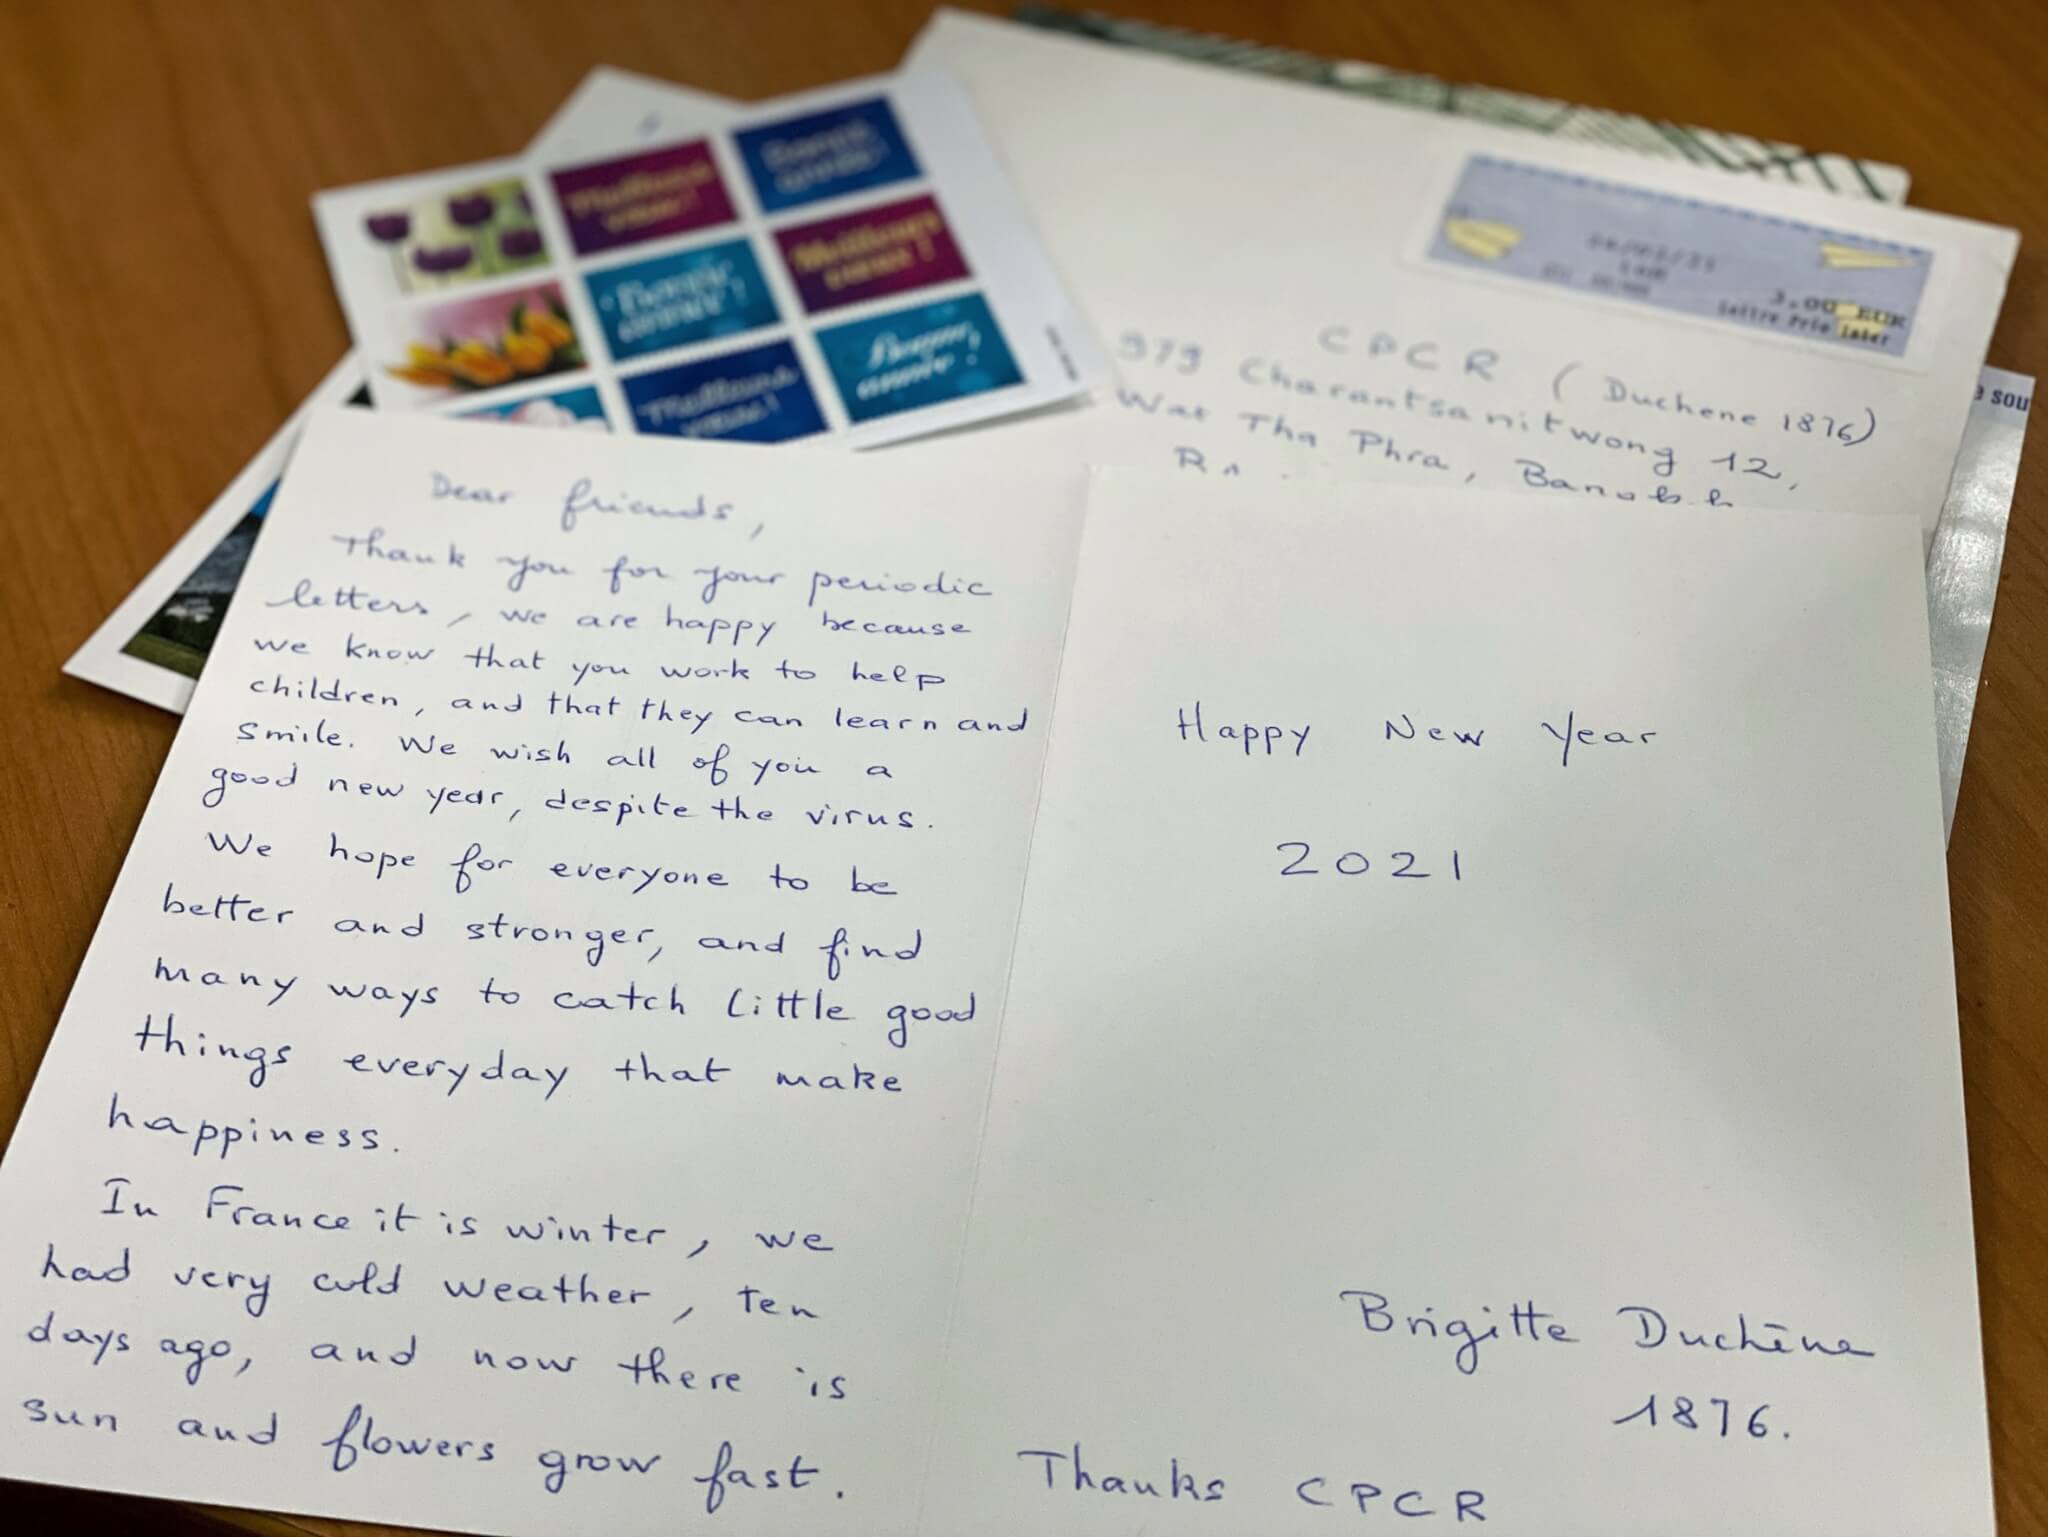 Meilleurs
vœux !
Bonne
année !
Bonne
année !
Meilleurs
vœux !
Meilleurs
vœux !
Bonne
année !
3.00 EUR
Lettre Prio Inter
e sou
CPCR (Duchene 1876)
979 Charantsanitwong 12,
Wat Tha Phra,
Dear friends,
Thank you for your periodic
letters, we are happy because
we know that you work to help
children, and that they can learn and
smile. We wish all of you a
good new year, despite the virus.
We hope for everyone to be
better and stronger, and find
many ways to catch little good
things everyday that make
happiness.
In France it is winter, we
had very cold weather, ten
days ago, and now there is
sun and flowers grow fast.
Happy New Year
2021
Brigitte Duchêne
1876.
Thanks CPCR